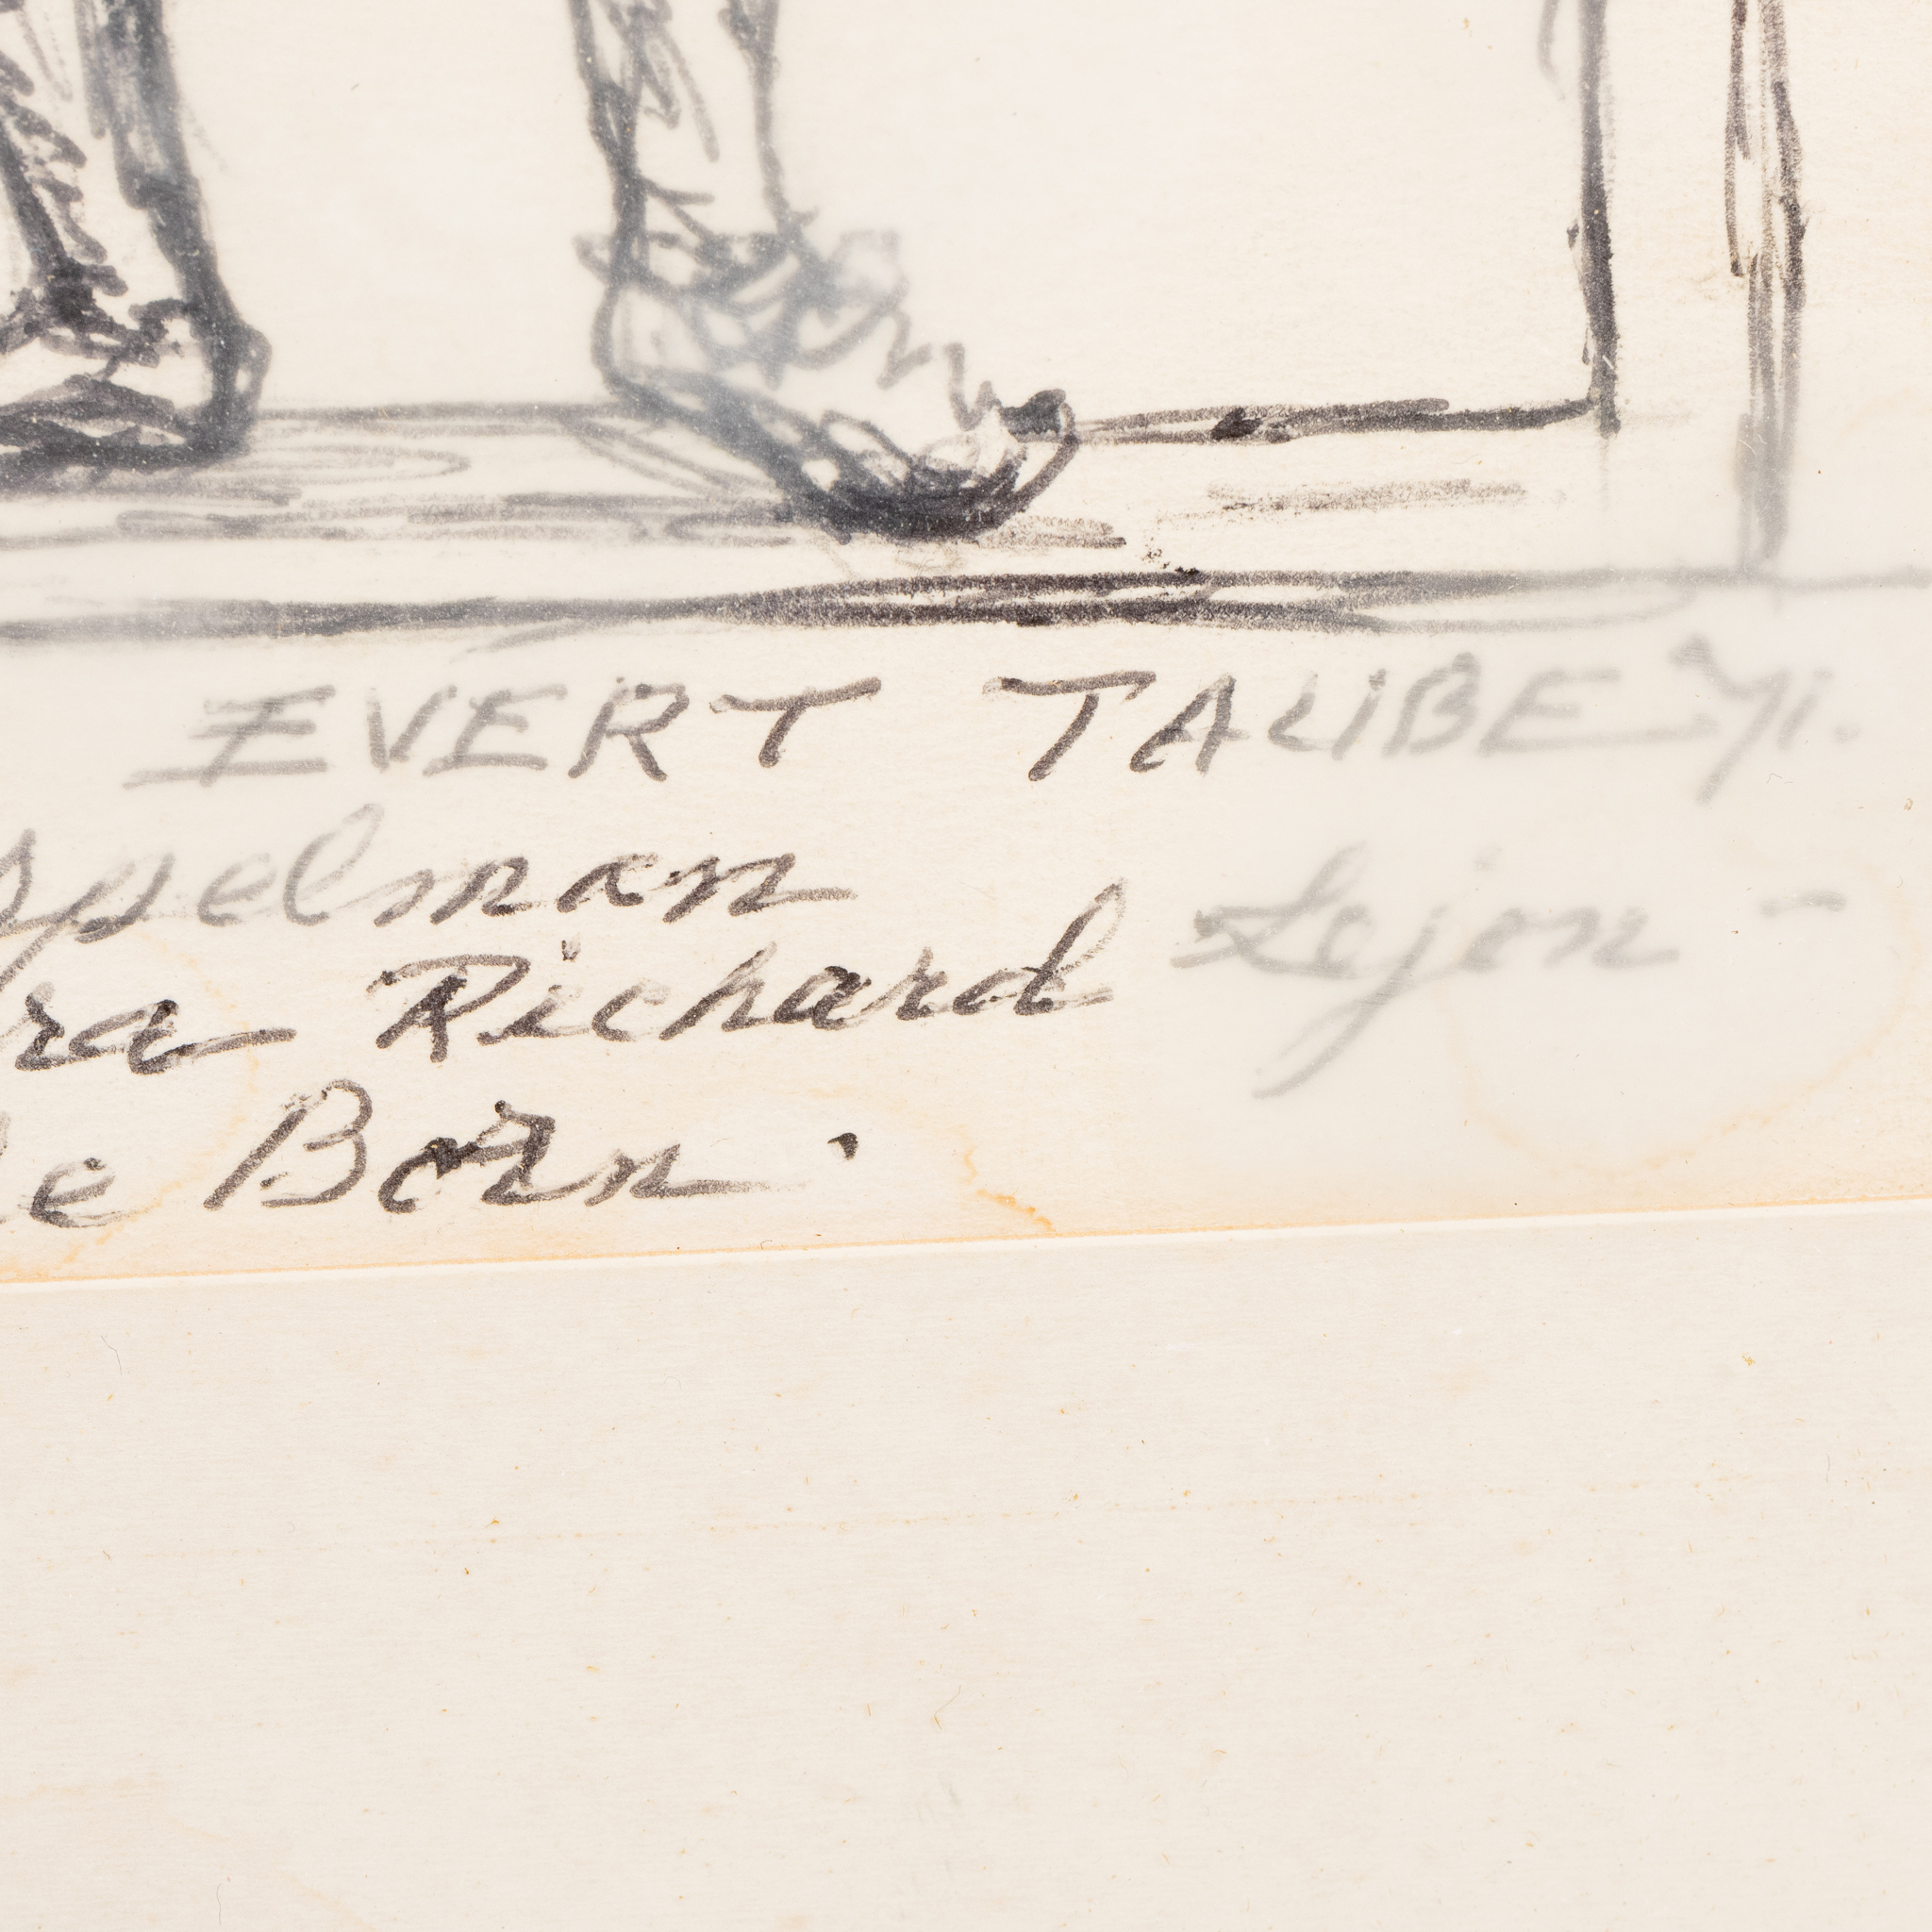 EVERT TAUBE 71.
spelman
ra Richard Lejon -
e Born.